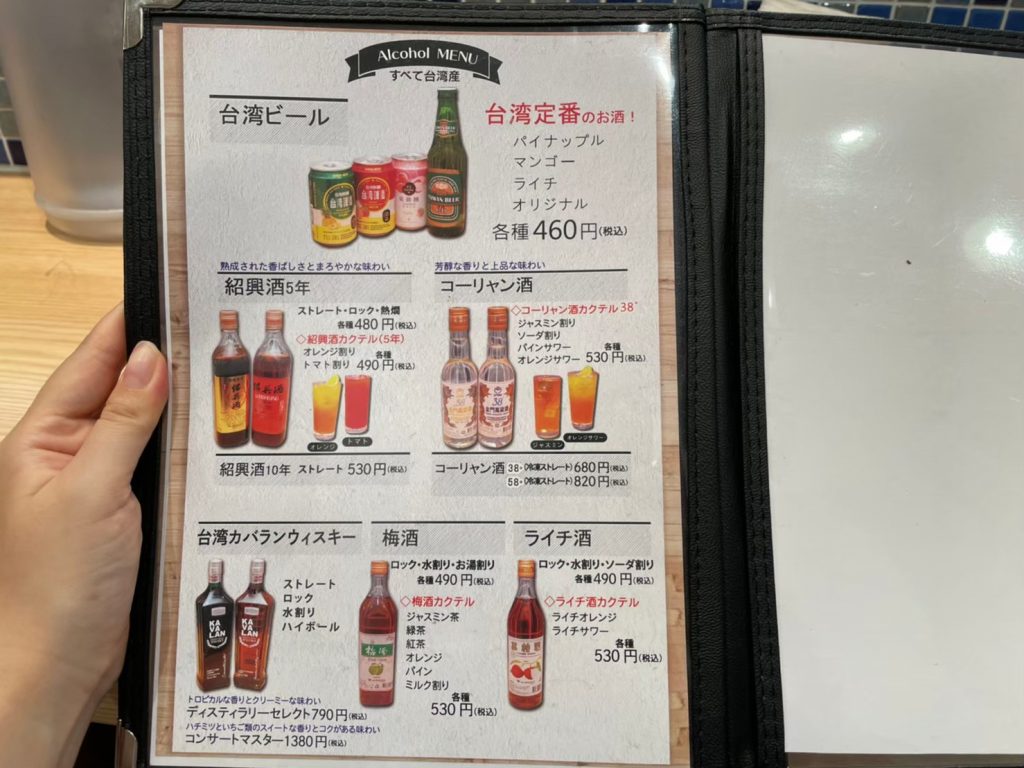 Alcohol MENU
すべて台湾産
台湾ビール
台湾定番のお酒！
パイナップル
マンゴー
ライチ
オリジナル
各種460円(税込)
熟成された香ばしさとまろやかな味わい
紹興酒5年
ストレート・ロック・熱燗
各種480円(税込)
◇紹興酒カクテル(5年)
オレンジ割り
トマト割り
各種
490円(税込)
オレンジ
トマト
紹興酒10年 ストレート 530円(税込)
芳醇な香りと上品な味わい
コーリャン酒
◇コーリャン酒カクテル38°
ジャスミン割り
ソーダ割り
パインサワー
オレンジサワー
各種
530円(税込)
38
38
ジャスミン
オレンジサワー
コーリャン酒 38°(冷凍ストレート)680円(税込)
58°(冷凍ストレート)820円(税込)
台湾カバランウィスキー
ストレート
ロック
水割り
ハイボール
KAVALAN
KAVALAN
トロピカルな香りとクリーミーな味わい
ディスティラリーセレクト790円(税込)
ハチミツといちご類のスイートな香りとコクがある味わい
コンサートマスター1380円(税込)
梅酒
ロック・水割り・お湯割り
各種490円(税込)
◇梅酒カクテル
ジャスミン茶
緑茶
紅茶
オレンジ
パイン
ミルク割り
各種
530円(税込)
梅酒
ライチ酒
ロック・水割り・ソーダ割り
各種490円(税込)
◇ライチ酒カクテル
ライチオレンジ
ライチサワー
各種
530円(税込)